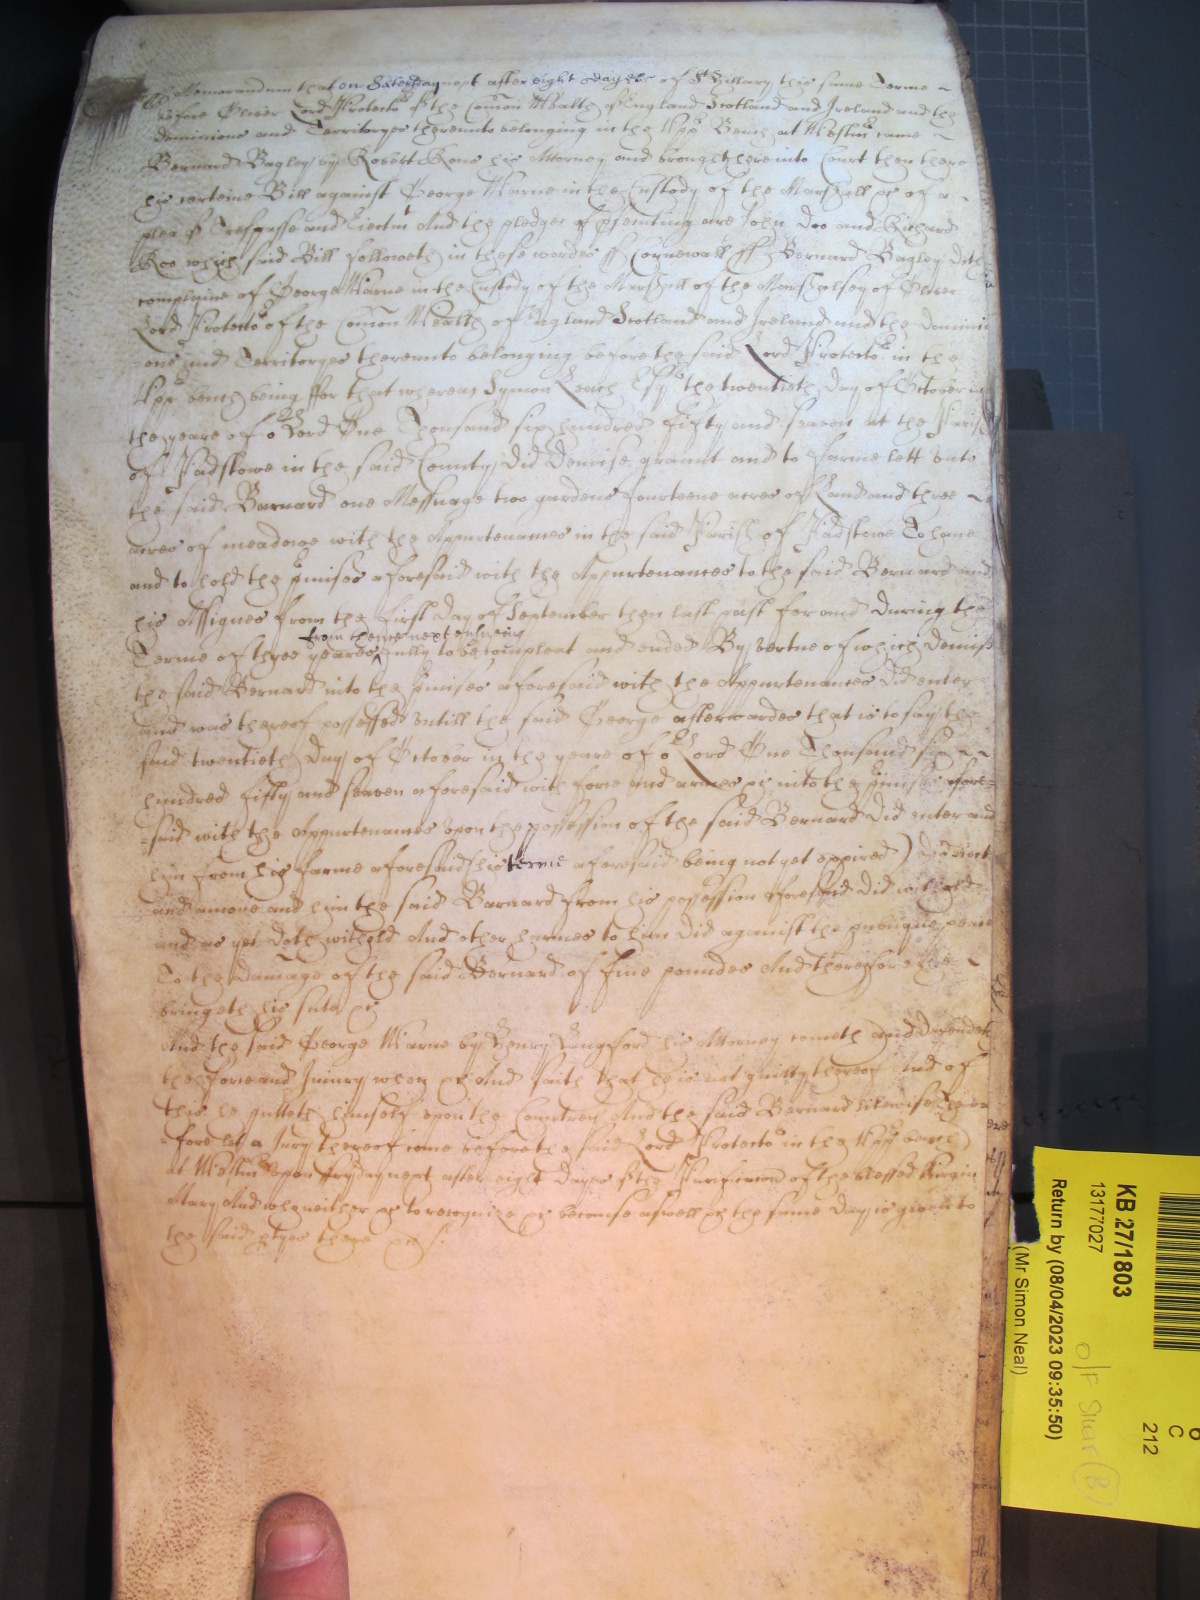 Memorandum that on Saterday next after eight dayes of St Hillary this same Terme
before Oliver Lord Protector of the Comon Wealth of England Scotland and Ireland and the
dominions and Territoryes thereunto belonging in the Upp Bench at Westmr came
Bernard Bagley by Robert his Attorney and brought here into Court then there
his certeine Bill against George Warne in the Custody of the Marshall &c of a
plea of Trespasse and Eiectmt And the pledges of prosecuting are John Doo and Richard
Roo which said Bill followeth in these wordes ss Cornewall ss Bernard Bagley doth
complaine of George Warne in the Custody of the Marshall of the Marshalsey of Oliver
Lord Protector of the Comon Wealth of England Scotland and Ireland and the domini
ons and Territoryes thereunto belonging before the said Lord Protector in the
Upp bench being ffor that whereas Symon Leach Esqr the twentieth day of October in
the yeare of or Lord One Thousand six hundred fifty and seaven at the Parish
of Padstowe in the said County did demise graunt and to farme lett unto
the said Barnard one Messuage two gardens fourteene acres of Land and three
acres of meadowe with the Appurtenances in the said Parish of Padstowe To have
and to hold the pmises aforesaid with the Appurtenances to the said Bernard and
his Assignes from the first day of September then last past for and during the
from thence next ensueing
Terme of three yeares fully to be compleat and ended By vertue of which demise
the said Bernard into the pmises aforesaid with the Appurtenances did enter
and was thereof possessed untill the said George afterwardes that is to say the
said twentieth day of October in the yeare of or Lord One Thousand six
hundred fifty and seaven aforesaid with force and armes &c into the pmises afore=
=said with the Appurtenances upon the possession of the said Bernard did enter and
him from his farme aforesaid (his terme aforesaid being not yet expired) did eiect
and amove and him the said Barnard from his possession aforesaid did withhold
and as yet doth withhold And other harmes to him did against the publique peace
To the damage of the said Bernard of five poundes And therefore he
bringeth his sute &c
And the said George Warne by Henry Langford his Attorney cometh and defendeth
the force and Iniury when &c And saith that he is not guilty thereof And of
this he putteth himself upon the Countrey And the said Bernard likewise There
=fore let a Iury thereof come before the said Lord Protector in the Upp bench
at Westmr upon fryday next after eight dayes of the Purificacon of the blessed Virgin
Mary And who neither &c to recognize &c because aswell &c the same day is given to
the said ptyes there &c
KB 27/1803
13177027
Return by (08/04/2023 09:35:50)
(Mr Simon Neal)
C
212